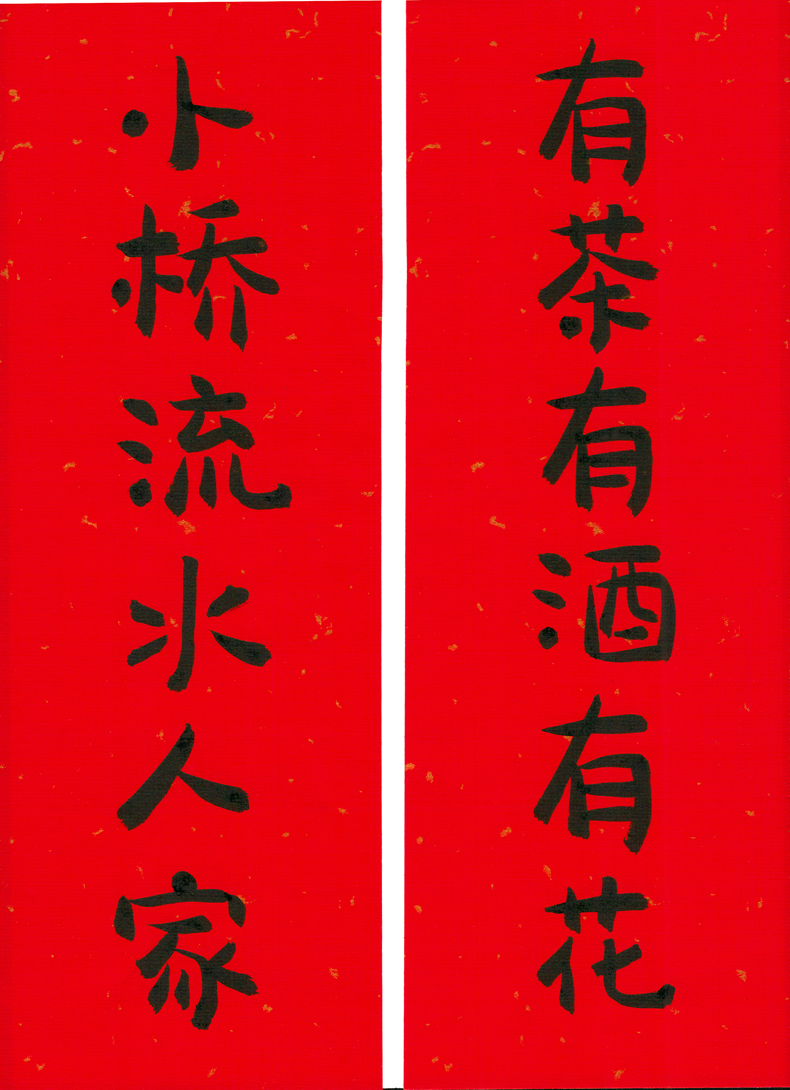 有茶有酒有花
小桥流水人家